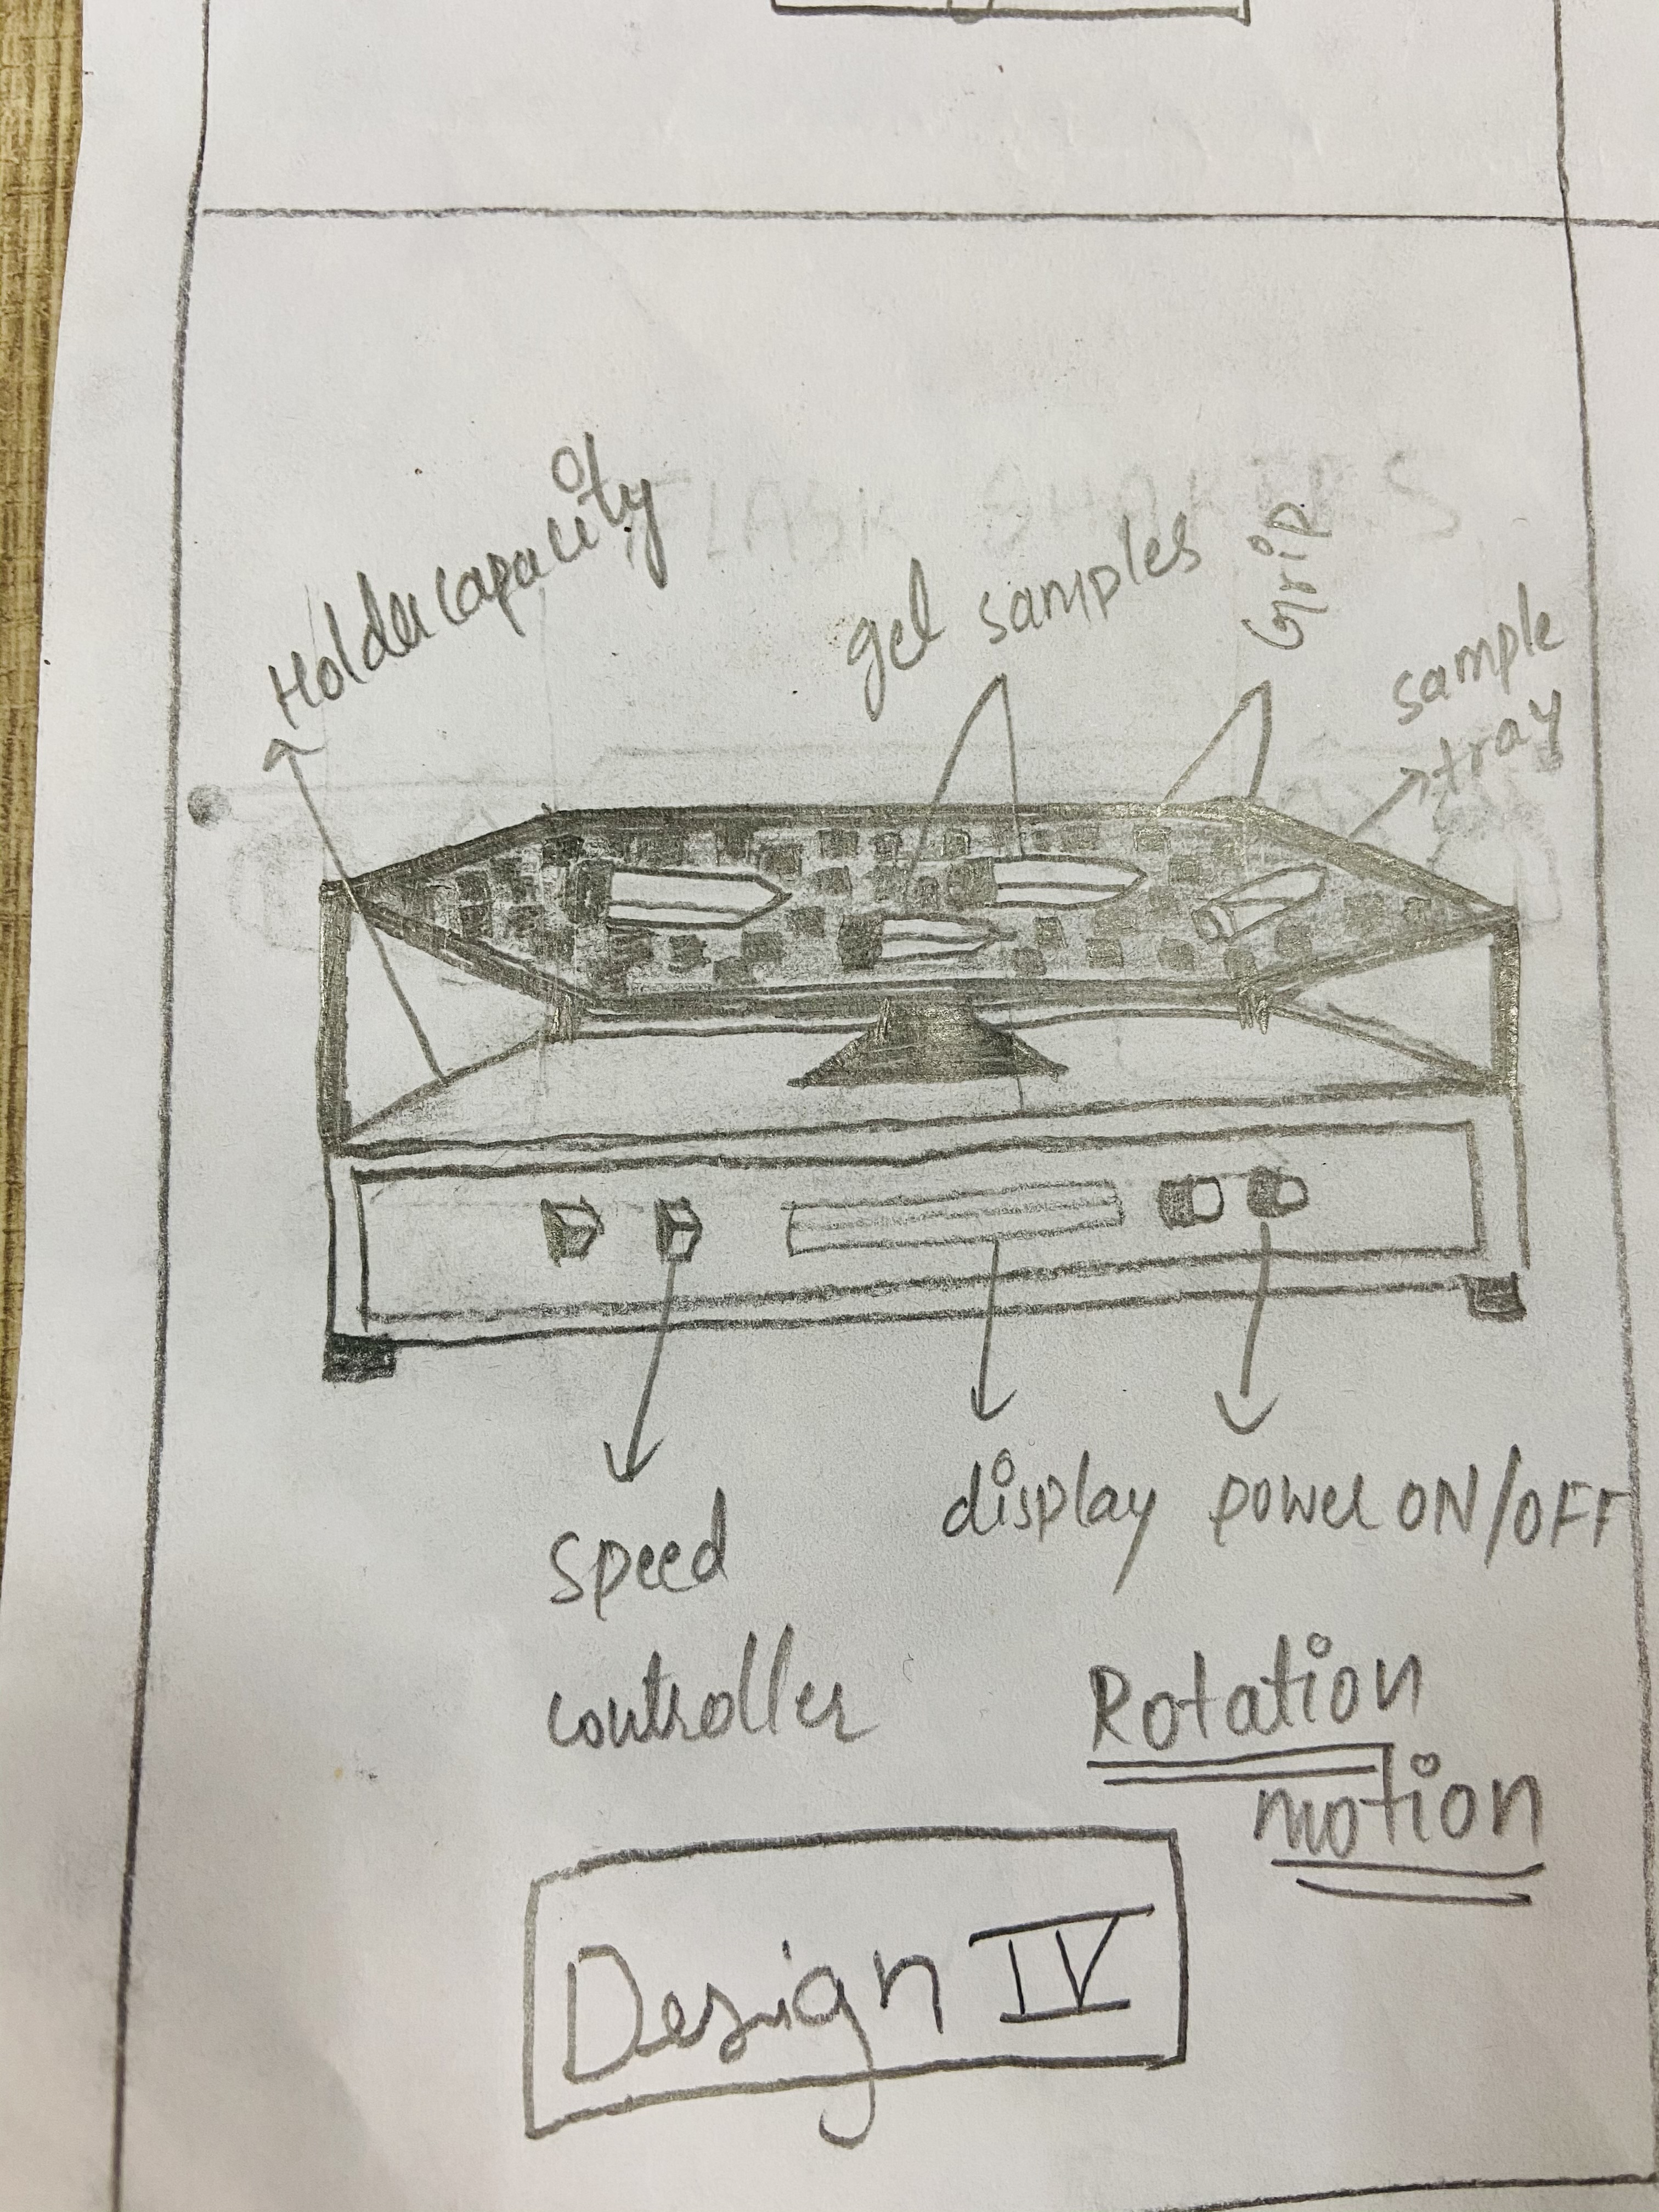 Holder capacity
gel samples
Grip
sample
tray
speed
controller
display
power ON/OFF
Rotation
motion
Design IV